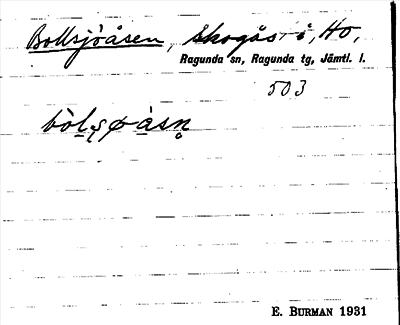 Bollsjöåsen, Skogås i, Hö,
Ragunda sn, Ragunda tg, Jämtl. l.
503
E. BURMAN 1931